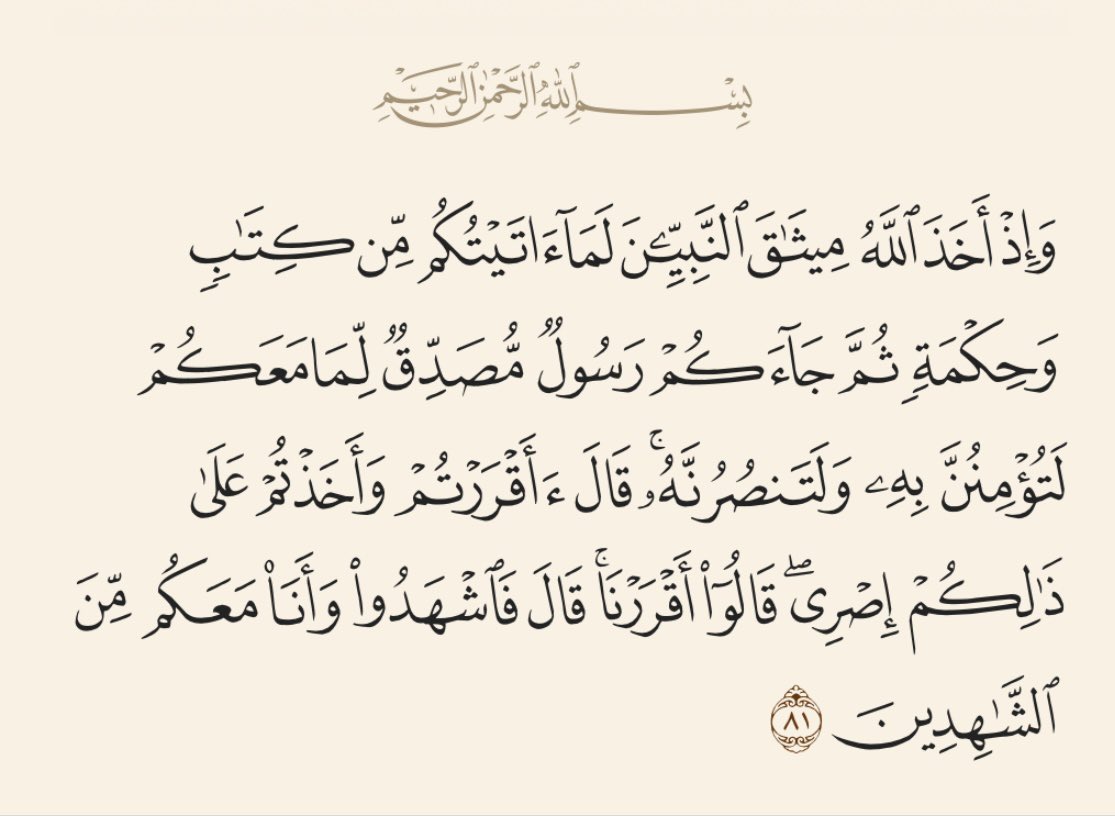 بِسْمِ ٱللَّهِ ٱلرَّحْمَٰنِ ٱلرَّحِيمِ
وَإِذْ أَخَذَ ٱللَّهُ مِيثَٰقَ ٱلنَّبِيِّـۧنَ لَمَآ ءَاتَيْتُكُم مِّن كِتَٰبٍ
وَحِكْمَةٍ ثُمَّ جَآءَكُمْ رَسُولٌ مُّصَدِّقٌ لِّمَا مَعَكُمْ
لَتُؤْمِنُنَّ بِهِۦ وَلَتَنصُرُنَّهُۥ ۚ قَالَ ءَأَقْرَرْتُمْ وَأَخَذْتُمْ عَلَىٰ
ذَٰلِكُمْ إِصْرِى ۖ قَالُوٓا۟ أَقْرَرْنَا ۚ قَالَ فَٱشْهَدُوا۟ وَأَنَا۠ مَعَكُم مِّنَ
ٱلشَّٰهِدِينَ ٨١